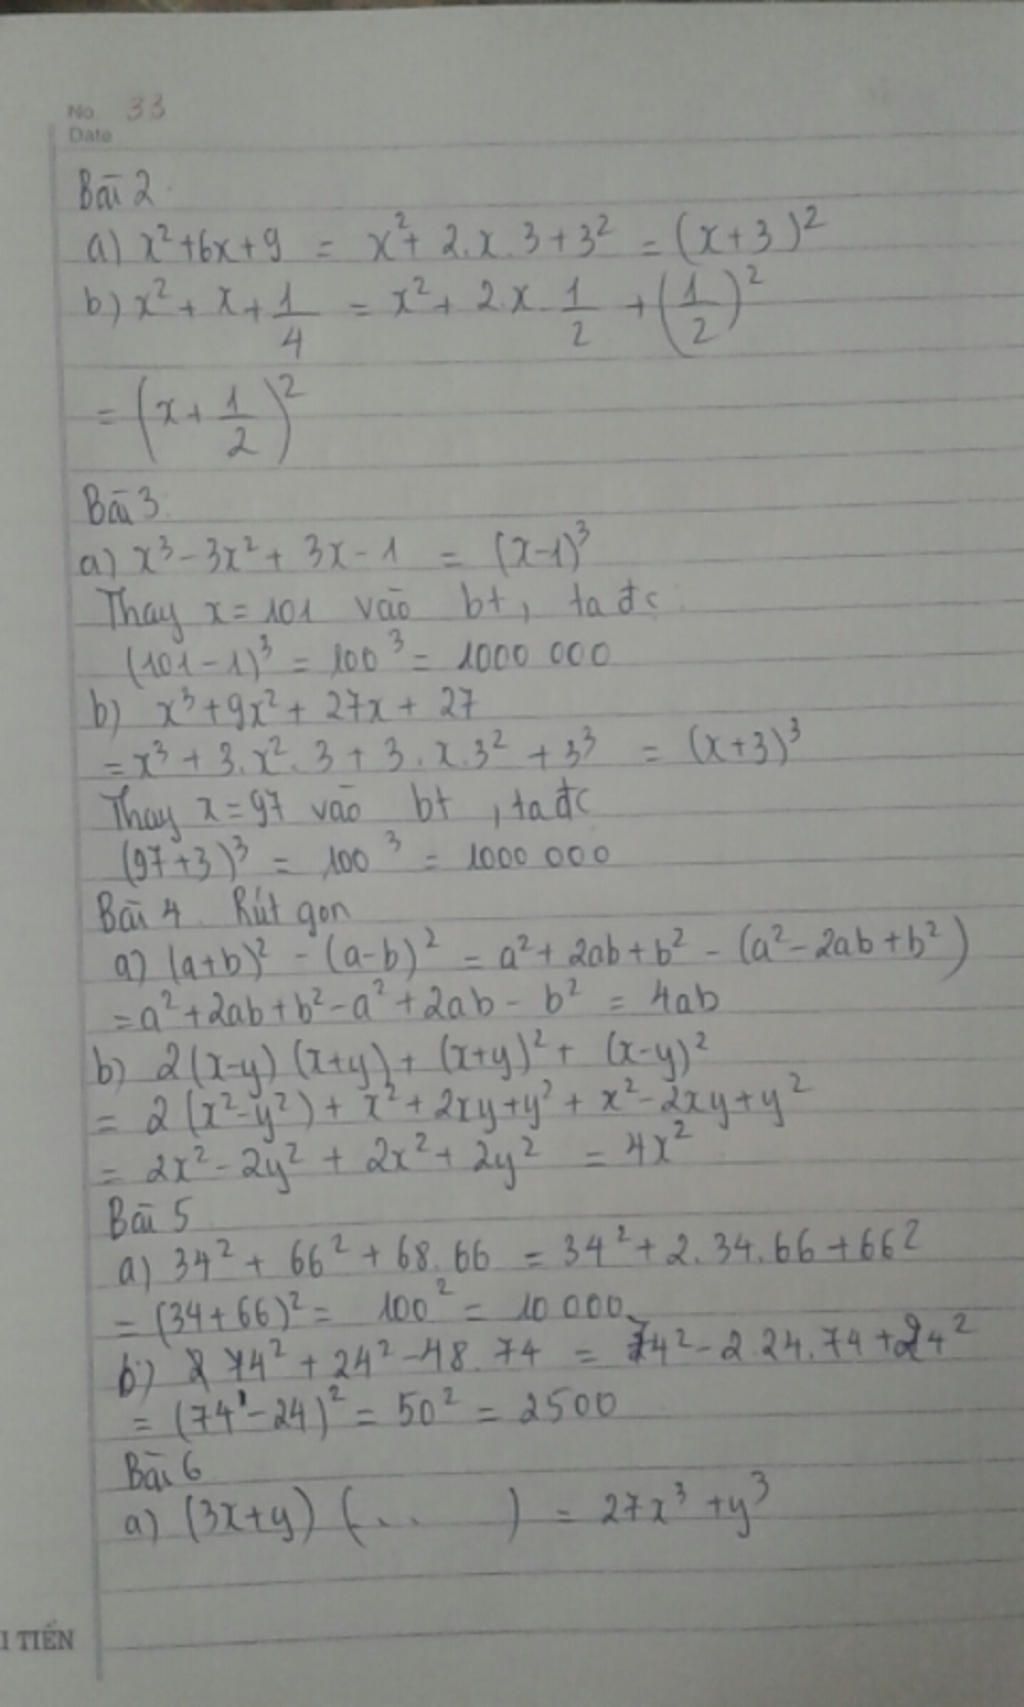 No 33
Date
Bài 2
a) x²+6x+9 = x²+ 2.x.3+3² = (x+3)²
b) x² + x + 1/4 = x² + 2.x.1/2 + (1/2)²
= (x + 1/2)²
Bài 3
a) x³ - 3x² + 3x - 1 = (x-1)³
Thay x = 101 vào bt, ta đc
(101-1)³ = 100³ = 1000 000
b) x³+9x²+ 27x + 27
= x³ + 3.x².3 + 3.x.3² + 3³ = (x+3)³
Thay x = 97 vào bt, ta đc
(97+3)³ = 100³ = 1000 000
Bài 4 Rút gọn
a) (a+b)² - (a-b)² = a²+ 2ab + b² - (a²- 2ab + b²)
= a² + 2ab + b² - a² + 2ab - b² = 4ab
b) 2(x-y) (x+y) + (x+y)² + (x-y)²
= 2(x²-y²) + x²+ 2xy+y² + x²- 2xy+y²
= 2x² - 2y² + 2x²+ 2y² = 4x²
Bài 5
a) 34² + 66² + 68.66 = 34² + 2.34.66 + 66²
= (34+66)² = 100² = 10 000
b) 74² + 24² - 48.74 = 74² - 2.24.74 + 24²
= (74 - 24)² = 50² = 2500
Bài 6
a) (3x+y) (.. ) = 27x³ + y³
I TIẾN